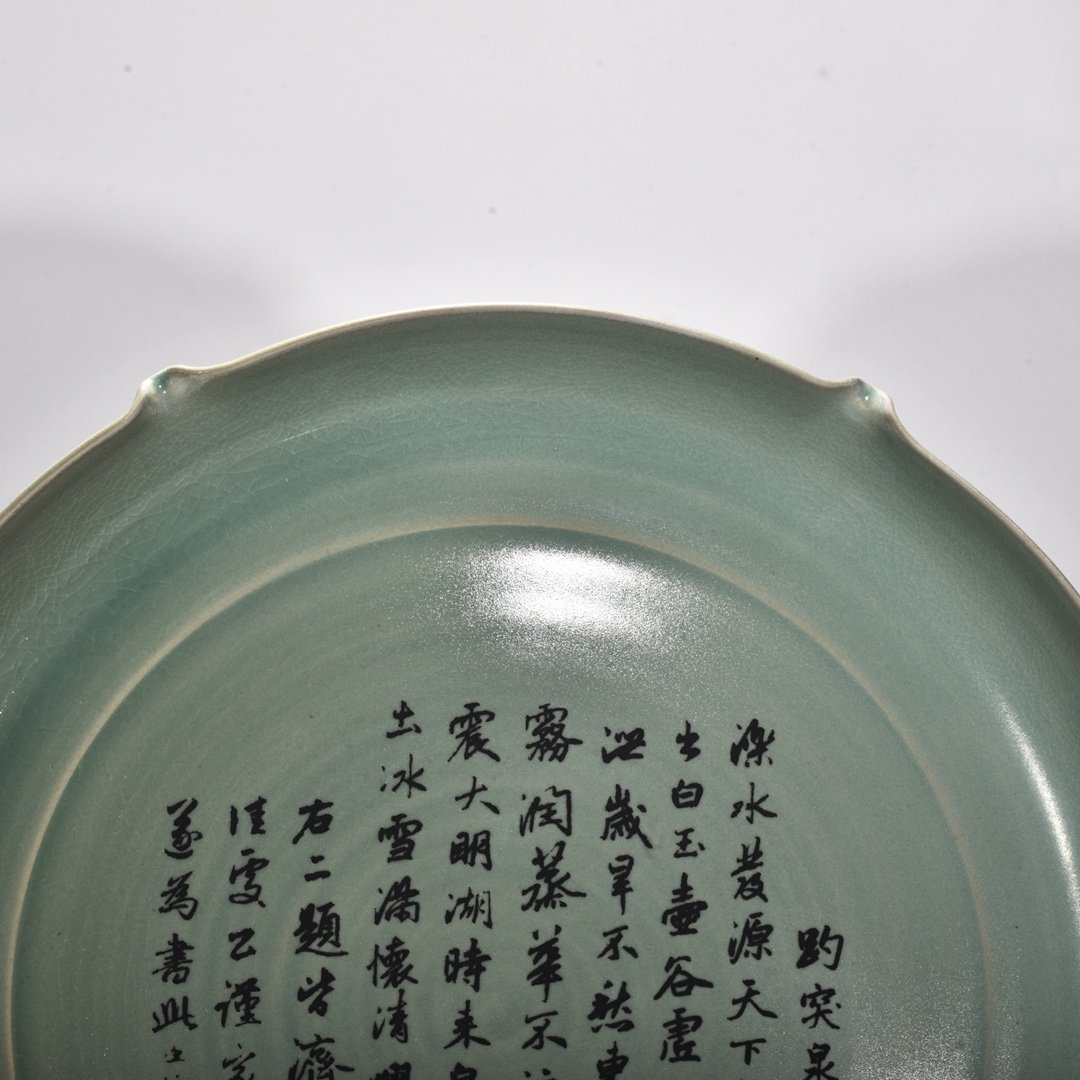 趵突泉
濼水發源天下
出白玉壺谷虛
泄歲旱不愁東
霧潤蒸華不
震大明湖時来
土冰雪滿懷清
右二題皆濟
佳處公謹家
遂為書此